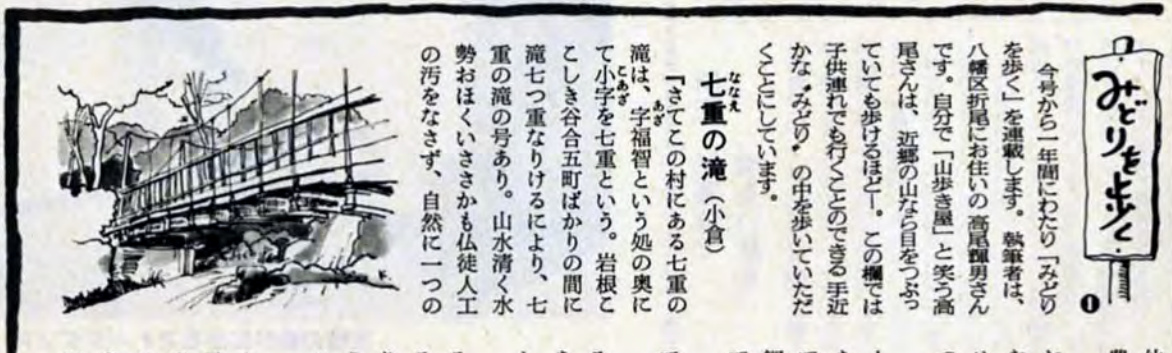 みどりを歩く
❶
今号から一年間にわたり「みどり
を歩く」を連載します。執筆者は、
八幡区折尾にお住いの高尾輝男さん
です。自分で「山歩き屋」と笑う高
尾さんは、近郷の山なら目をつぶっ
ていても歩けるほどー。この欄では
子供連れでも行くことのできる手近
かな〝みどり〟の中を歩いていただ
くことにしています。
七重の滝（小倉）
ななえ
「さてこの村にある七重の
滝は、字福智という処の奥に
あざ
て小字を七重という。岩根こ
こあざ
こしき谷合五町ばかりの間に
滝七つ重なりけるにより、七
重の滝の号あり。山水清く水
勢おほくいささかも仏徒人工
の汚をなさず、自然に一つの